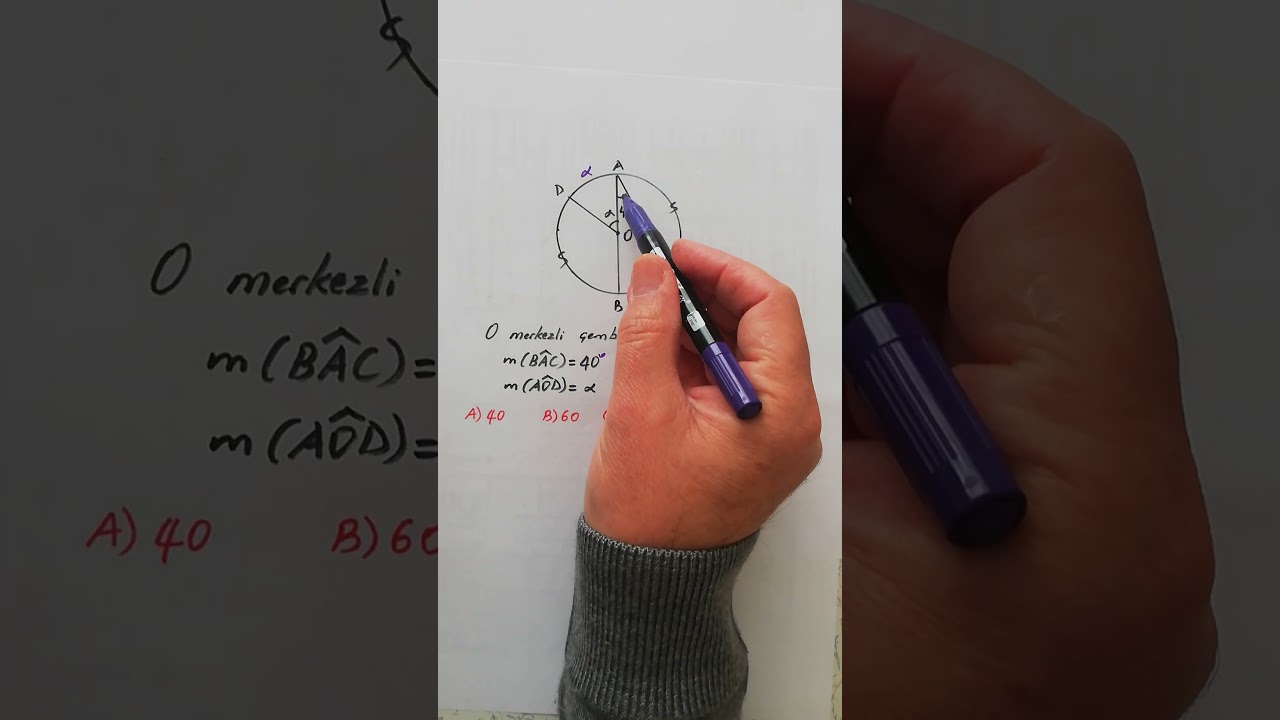 α
A
D
α
O
B
O merkezli çemb
m(BÂC)=40°
m(AÔD)=α
A) 40 B) 60
O merkezli
m(BÂC)=
m(AÔD)=
A) 40 B) 60